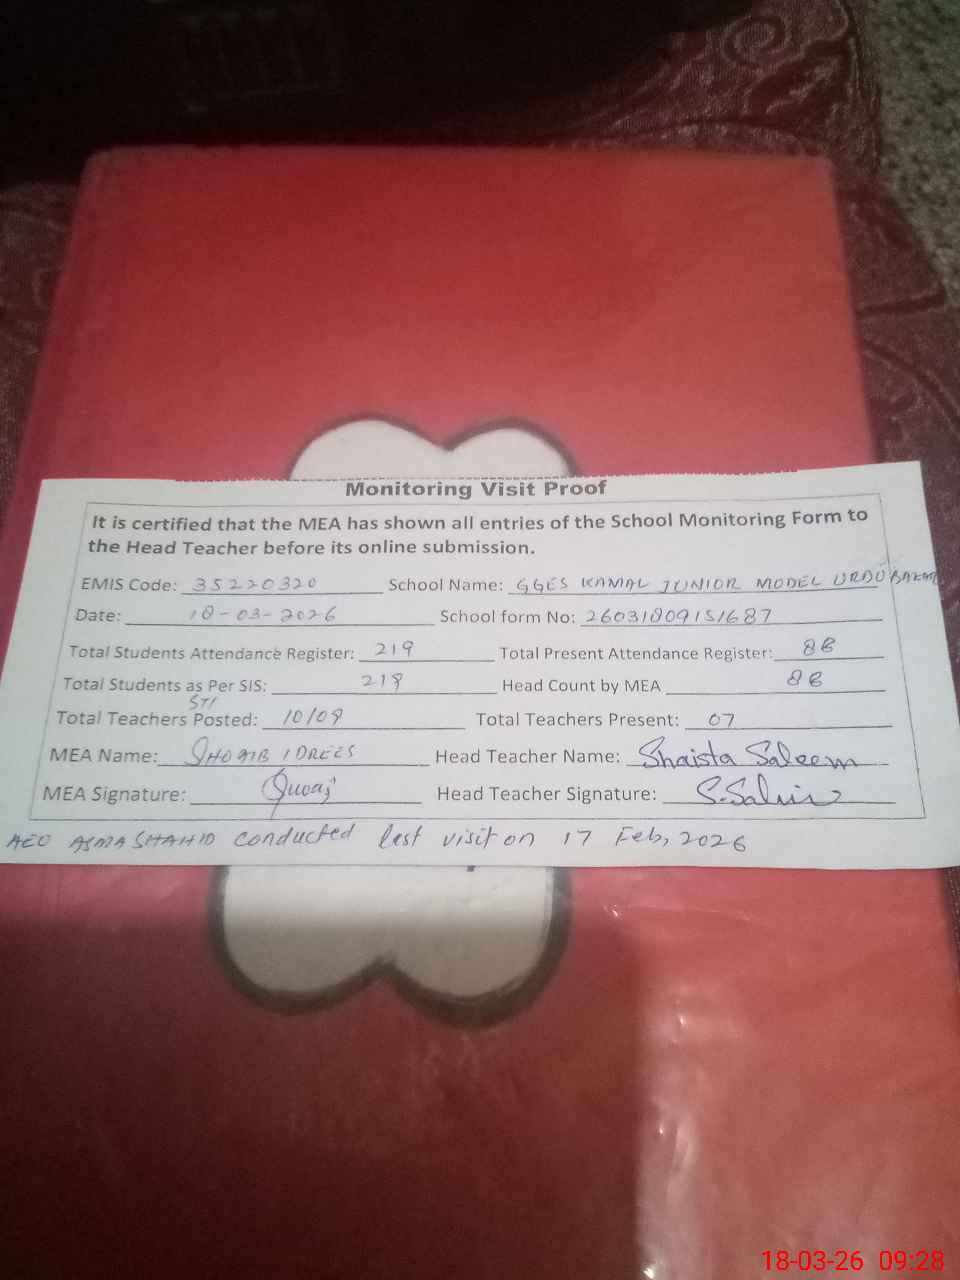 Monitoring Visit Proof
It is certified that the MEA has shown all entries of the School Monitoring Form to
the Head Teacher before its online submission.
EMIS Code: 35220320 School Name: GGES KAMAL JUNIOR MODEL URDU BAZAR
Date: 18-03-2026 School form No: 26031809151687
Total Students Attendance Register: 219 Total Present Attendance Register: 88
Total Students as Per SIS: 219 Head Count by MEA 88
STI
Total Teachers Posted: 10/09 Total Teachers Present: 07
MEA Name: SHOAIB IDREES Head Teacher Name: Shaista Saleem
MEA Signature: Head Teacher Signature: S.Salim
AEO ASMA SHAHID conducted last visit on 17 Feb, 2026
18-03-26 09:28